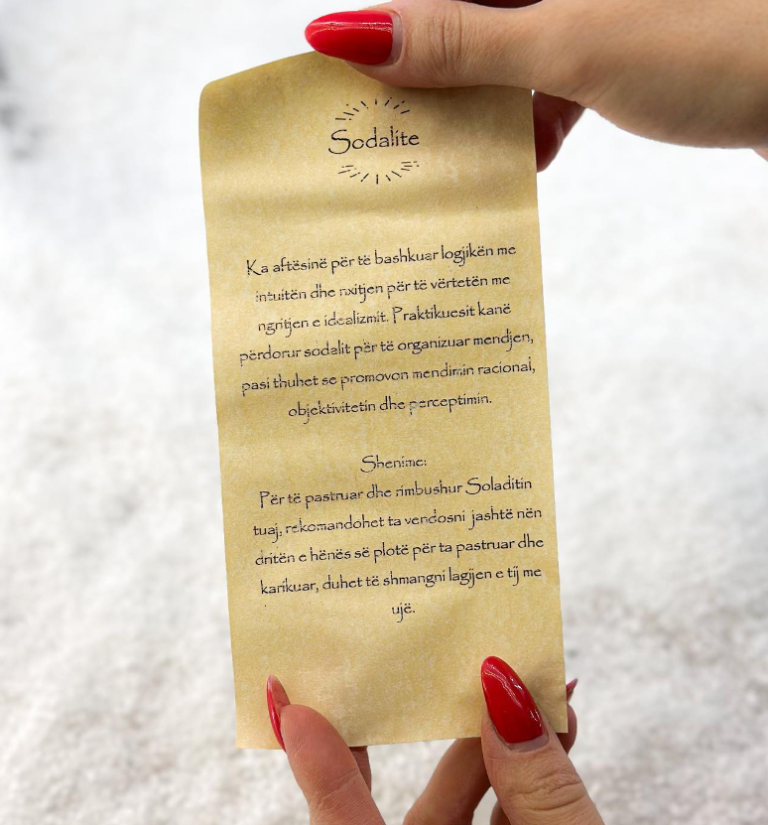 Sodalite
Ka aftësinë për të bashkuar logjikën me
intuitën dhe nxitjen për të vërtetën me
ngritjen e idealizmit. Praktikuesit kanë
përdorur sodalit për të organizuar mendjen,
pasi thuhet se promovon mendimin racional,
objektivitetin dhe perceptimin.
Shenime:
Për të pastruar dhe rimbushur Soladitin
tuaj, rekomandohet ta vendosni jashtë nën
dritën e hënës së plotë për ta pastruar dhe
karikuar, duhet të shmangni lagijen e tij me
ujë.